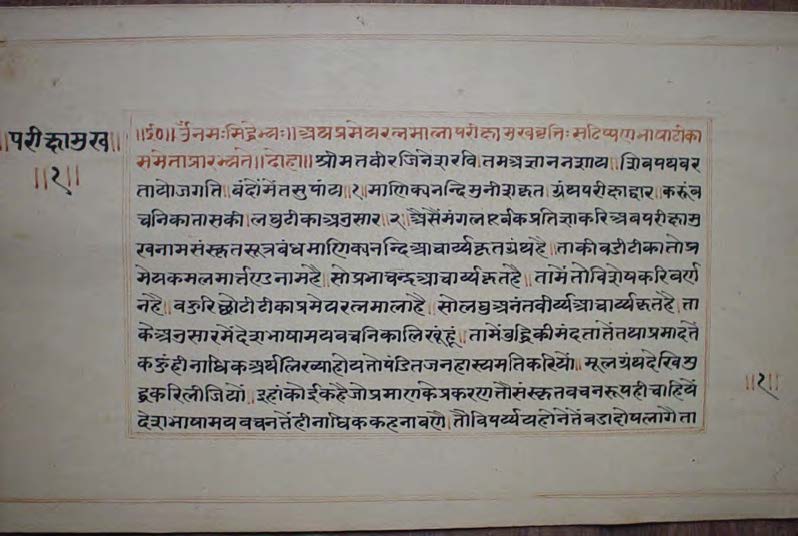 ॥परीक्षामुख॥
॥१॥
॥५०॥ ॐनमःसिद्धेभ्यः॥अथप्रमेयरत्नमालापरीक्षामुखवृत्तिःसटिप्पणभाषाटीका
समेताप्रारभ्यते॥दोहा॥श्रीमतवीरजिनेशरवि।तमअज्ञाननशाय।शिवपथवर
तायोजगति।वंदोंमेंतसुपांय।१।माणिक्यनन्दिमुनीशकृत।ग्रंथपरीक्षाद्वार।करूंव
चनिकातासकी।लघुटीकाअनुसार।२।अैसैंमंगलपूर्वकप्रतिज्ञाकरिअबपरीक्षामु
खनामसंस्कृतसूत्रबंधमाणिक्यनन्दिआचार्य्यकृतग्रंथहै।ताकीबडीटीकातोप्र
मेयकमलमार्त्तण्डनामहै।सोप्रभाचन्द्रआचार्य्यकृतहै।तामेंतोविशेषकरिवर्ण
नहै।वऊरिछोटीटीकाप्रमेयरत्नमालाहै।सोलघुअनंतवीर्य्यआचार्य्यकृतहै।ता
केअनुसारमेंदेशभाषामयवचनिकालिखूंहूं।तामेंबुद्धिकीमंदतातेंतथाप्रमादतें
कऊंहीनाधिकअर्थलिख्याहोयतोपंडितजनहास्यमतिकरियों।मूलग्रंथदेखिशु
द्धकरिलीजियों।इहांकोईकहैजोप्रमाणकेप्रकरणतौसंस्कृतवचनरूपहीचाहियें
देशभाषामयवचनतेंहीनाधिककहनाबणै।तौविपर्य्ययहोनेतेंबडादोषलागैता
॥१॥